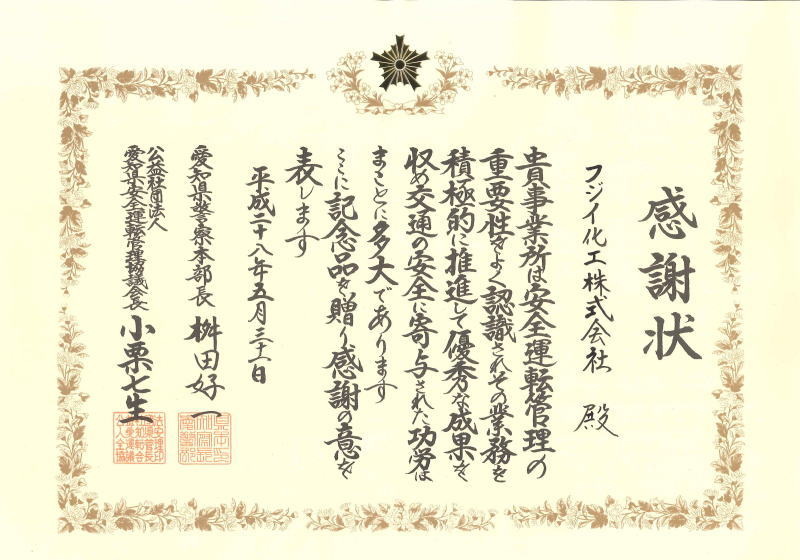 感謝状
フジイ化工株式会社 殿
貴事業所は安全運転管理の
重要性をよく認識されその業務を
積極的に推進して優秀な成果を
収め交通の安全に寄与された功労は
まことに多大であります
ここに記念品を贈り感謝の意を
表します
平成二十八年五月三十一日
愛知県警察本部長 桝田好一
公益社団法人
愛知県安全運転管理協議会会長 小栗七生